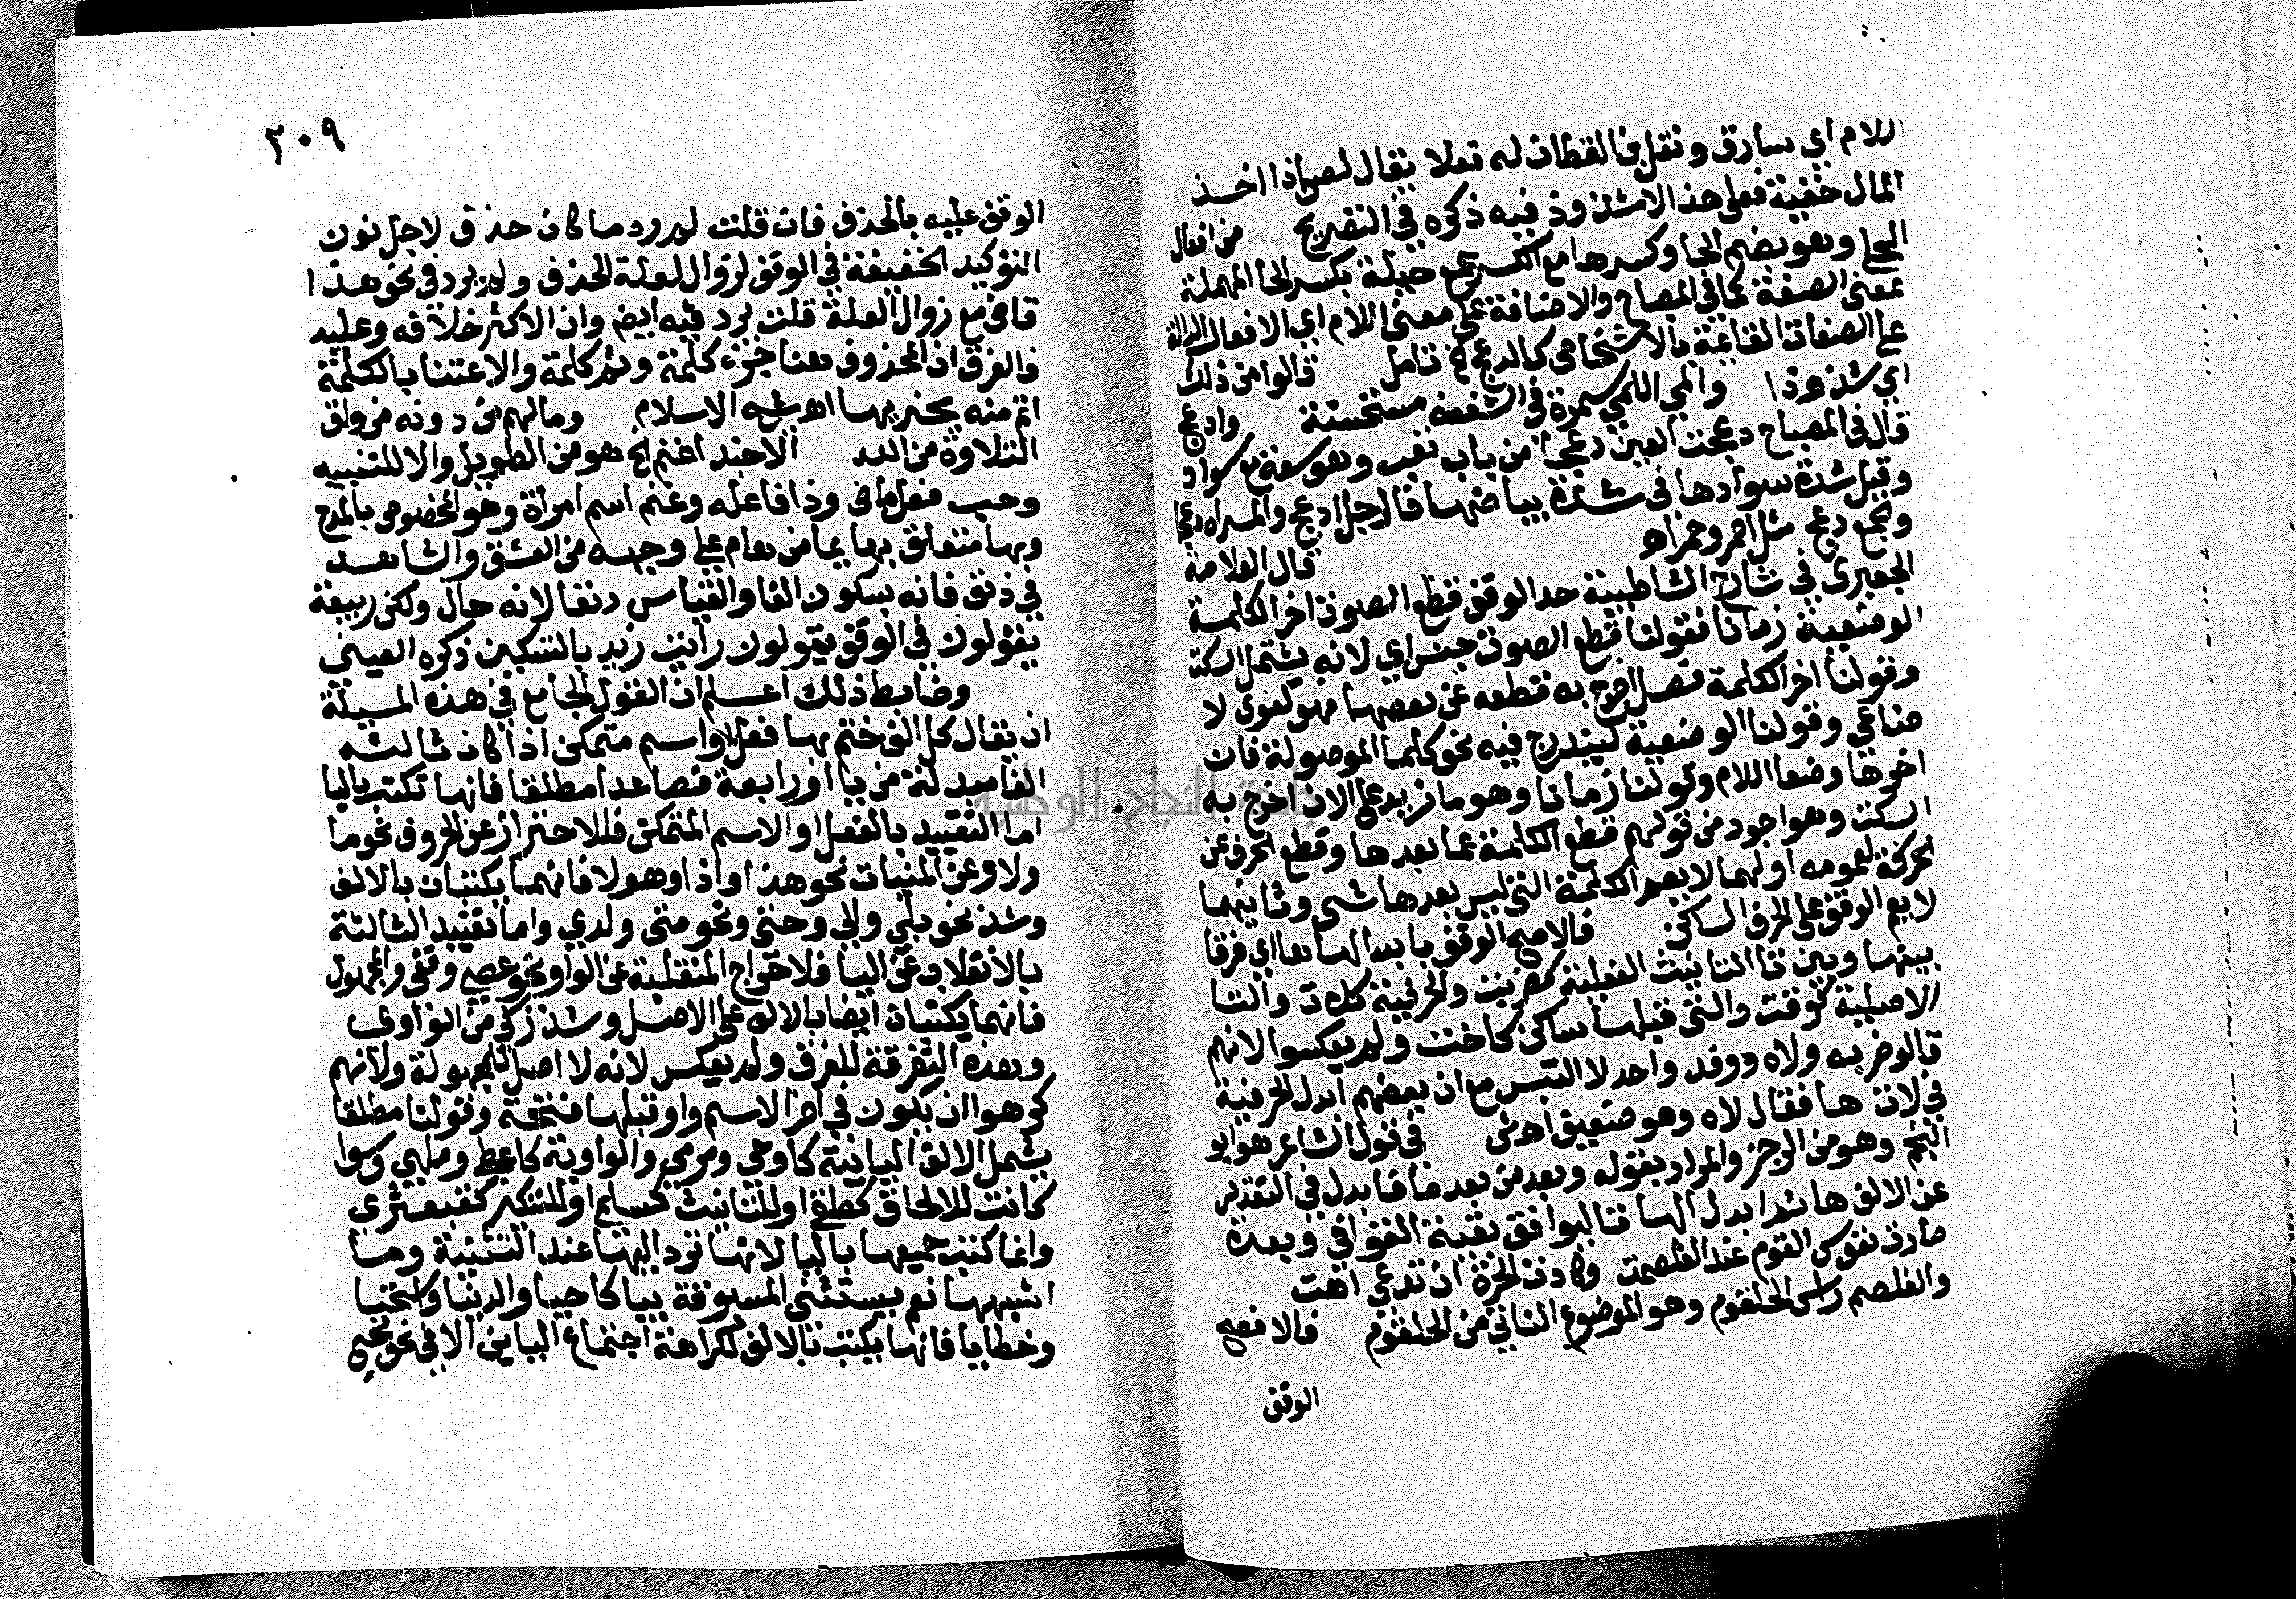 اللام اي سارق ونقل بن القطاع له فعلا يقال لص اذا اخذ
المال خفية فعلى هذا لا شذوذ فيه ذكره في التصريح من افعال
الحلى وهو بضم الحا وكسرها مع الكسر جمع حيلة بكسر الحا المهملة
بمعنى الصفة كما في المصباح والاضافة على معنى اللام اي الافعال الدالة
على الصفات القائمة بالاشخاص كالدعج تامل قالوا من ذلك
اي شذوذا والمى اللمى سمرة في الشفة مستحسنة وادعج
قال في المصباح دعجت العين دعجا من باب تعب وهو سعة مع سواد
وقيل شدة سوادها في شدة بياضها فالرجل ادعج والمراه دعجا
والجمع دعج مثل احمر وحمر اه قال العلامة
الجعبري في شارح الشاطبية حد الوقف قطع الصوت اخر الكلمة
الوضعية زمانا فقولنا قطع الصوت جنس اي لانه يشتمل السكت
وقولنا اخر الكلمة فصل اخرج به قطعه عن بعضها فهو لغوي لا
صناعي وقولنا الوضعية ليندرج فيه نحو كلما الموصولة فان
اخرها وضعا اللام وقولنا زمانا وهو ما زيد على الان اخرج به
السكت وهو اجود من قولهم قطع الكلمة عما بعدها وقطع الحرف عن
الحركة لعمومه اولهما لا يعم الكلمة التي ليس بعدها شي وثانيهما
لا يعم الوقف على الحرف الساكن فالاصح الوقف بابدالها ها اي فرقا
بينها وبين تا التانيث الفعلية كضربت والحرفية كلات والتا
الاصلية كوقت والتي قبلها ساكن كاخت ولم يعكسوا لانهم
قالوا ضربه ولاه ووقه واحد لا التبس مع ان بعضهم ابدل الحرفية
في لات ها فقال لاه وهو ضعيف اهش في قول الشاعر هو ابو
النجم وهو من الرجز والمراد بقوله وبعدمت بعد ما فابدل في التقدير
عن الالف ها ثم ابدل الها تا ليوافق بقية القوافي وبعده
صارت نفوس القوم عند الغلصمت وكادت الحرة ان تدعى امت
والغلصم راس الحلقوم وهو الموضوع الناتئ من الحلقوم فالافصح
الوقف
٢٠٩
الوقف عليه بالحذف فان قلت لم يرد ما كان حذف لاجل نون
التوكيد الخفيفة في الوقف لزوال العلة الحذف ولم يرد في نحو هذا
قاض مع زوال العلة قلت يرد فيه ايضا وان الاكثر خلافه وعليه
فالفرق ان المحذوف هنا جزء كلمة وثم كلمة والاعتنا بالكلمة
اتم منه بجزيها اه شيخ الاسلام وما لهم من دونه من وال
التلاوة من الله الا حبذا غنم الخ هو من الطويل والا للتنبيه
وحب فعل ماض وذا فاعله وغنم اسم امراة وهو المخصوص بالمدح
وبها متعلق بهايما من هام على وجهه من العشق والشاهد
في دنف فانه بسكون الفا والقياس دنفا لانه حال ولكن ربيعة
يقولون في الوقف يقولون رايت زيد بالتسكين ذكره العيني
وضابط ذلك اعلم ان القول الجامع في هذه المسيلة
ان يقال كل الف ختم بها فعل او اسم متمكن اذا كان ثالثه
الفا مبدلة من يا او رابعة فصاعدا مطلقا فانها تكتب باليا
اما التقييد بالفعل او الاسم المتمكن فللاحتراز عن الحروف نحو ما
ولا وعن المبنيات نحو هذا واذا وهولا فانهما يكتبان بالالف
وشذ نحو بلى والى وحتى ونحو متى ولدي واما تقييد الثالثة
بالانقلاب عن اليا فلاخراج المنقلبة عن الواو نحو عصى وقفى والمجهول
فانهما يكتبان ايضا بالالف على الاصل وشذ زكى من الواوى
وبهذه التفرقة للفرق ولم يعكس لانه لا اصل للمجهولة ولانهم
كرهوا ان يكون في اخر الاسم واو قبلها فتحة وقولنا مطلقا
يشمل الالف اليائية كاوحى ومرمى والواوية كاعطى وملهى وسوا
كانت للالحاق كعلقى او للتانيث كسلمى او للتكثير كقبعثرى
وانما كتبت جميعها باليا لانها تود اليها عند التثنية وما
اشبهها نعم يستثنى المسبوقة بيا كاحيا والدنيا واستحيا
وخطايا فانها يكتب بالالف لكراهة اجتماع اليايين الا في نحو يحيى